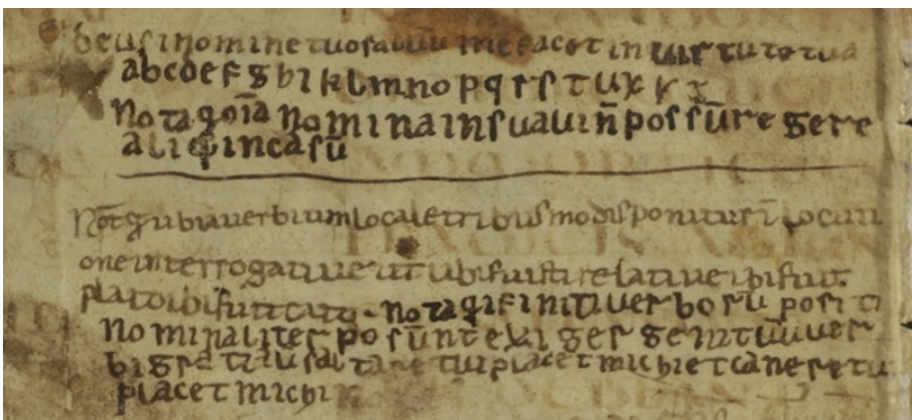 deus inomine tuo saluū me facet in uirtute tua
abcdefghiklmnopqrstuxyz
Nota qoīa nomina in sua ui ñ possūt regere
aliq̄ in casū
Not̄ q ubi auerbium locale tribus modis ponitur ī locuti
one interrogatiue ut ubi fuisti relatiue ibi fuit
plato ibi fuit cato. nota q ifinitiuer bosū positi
nominaliter posūnt exiges genitūu uer
bi gr̄a saltare tui placet michi et canere tu
placet michi